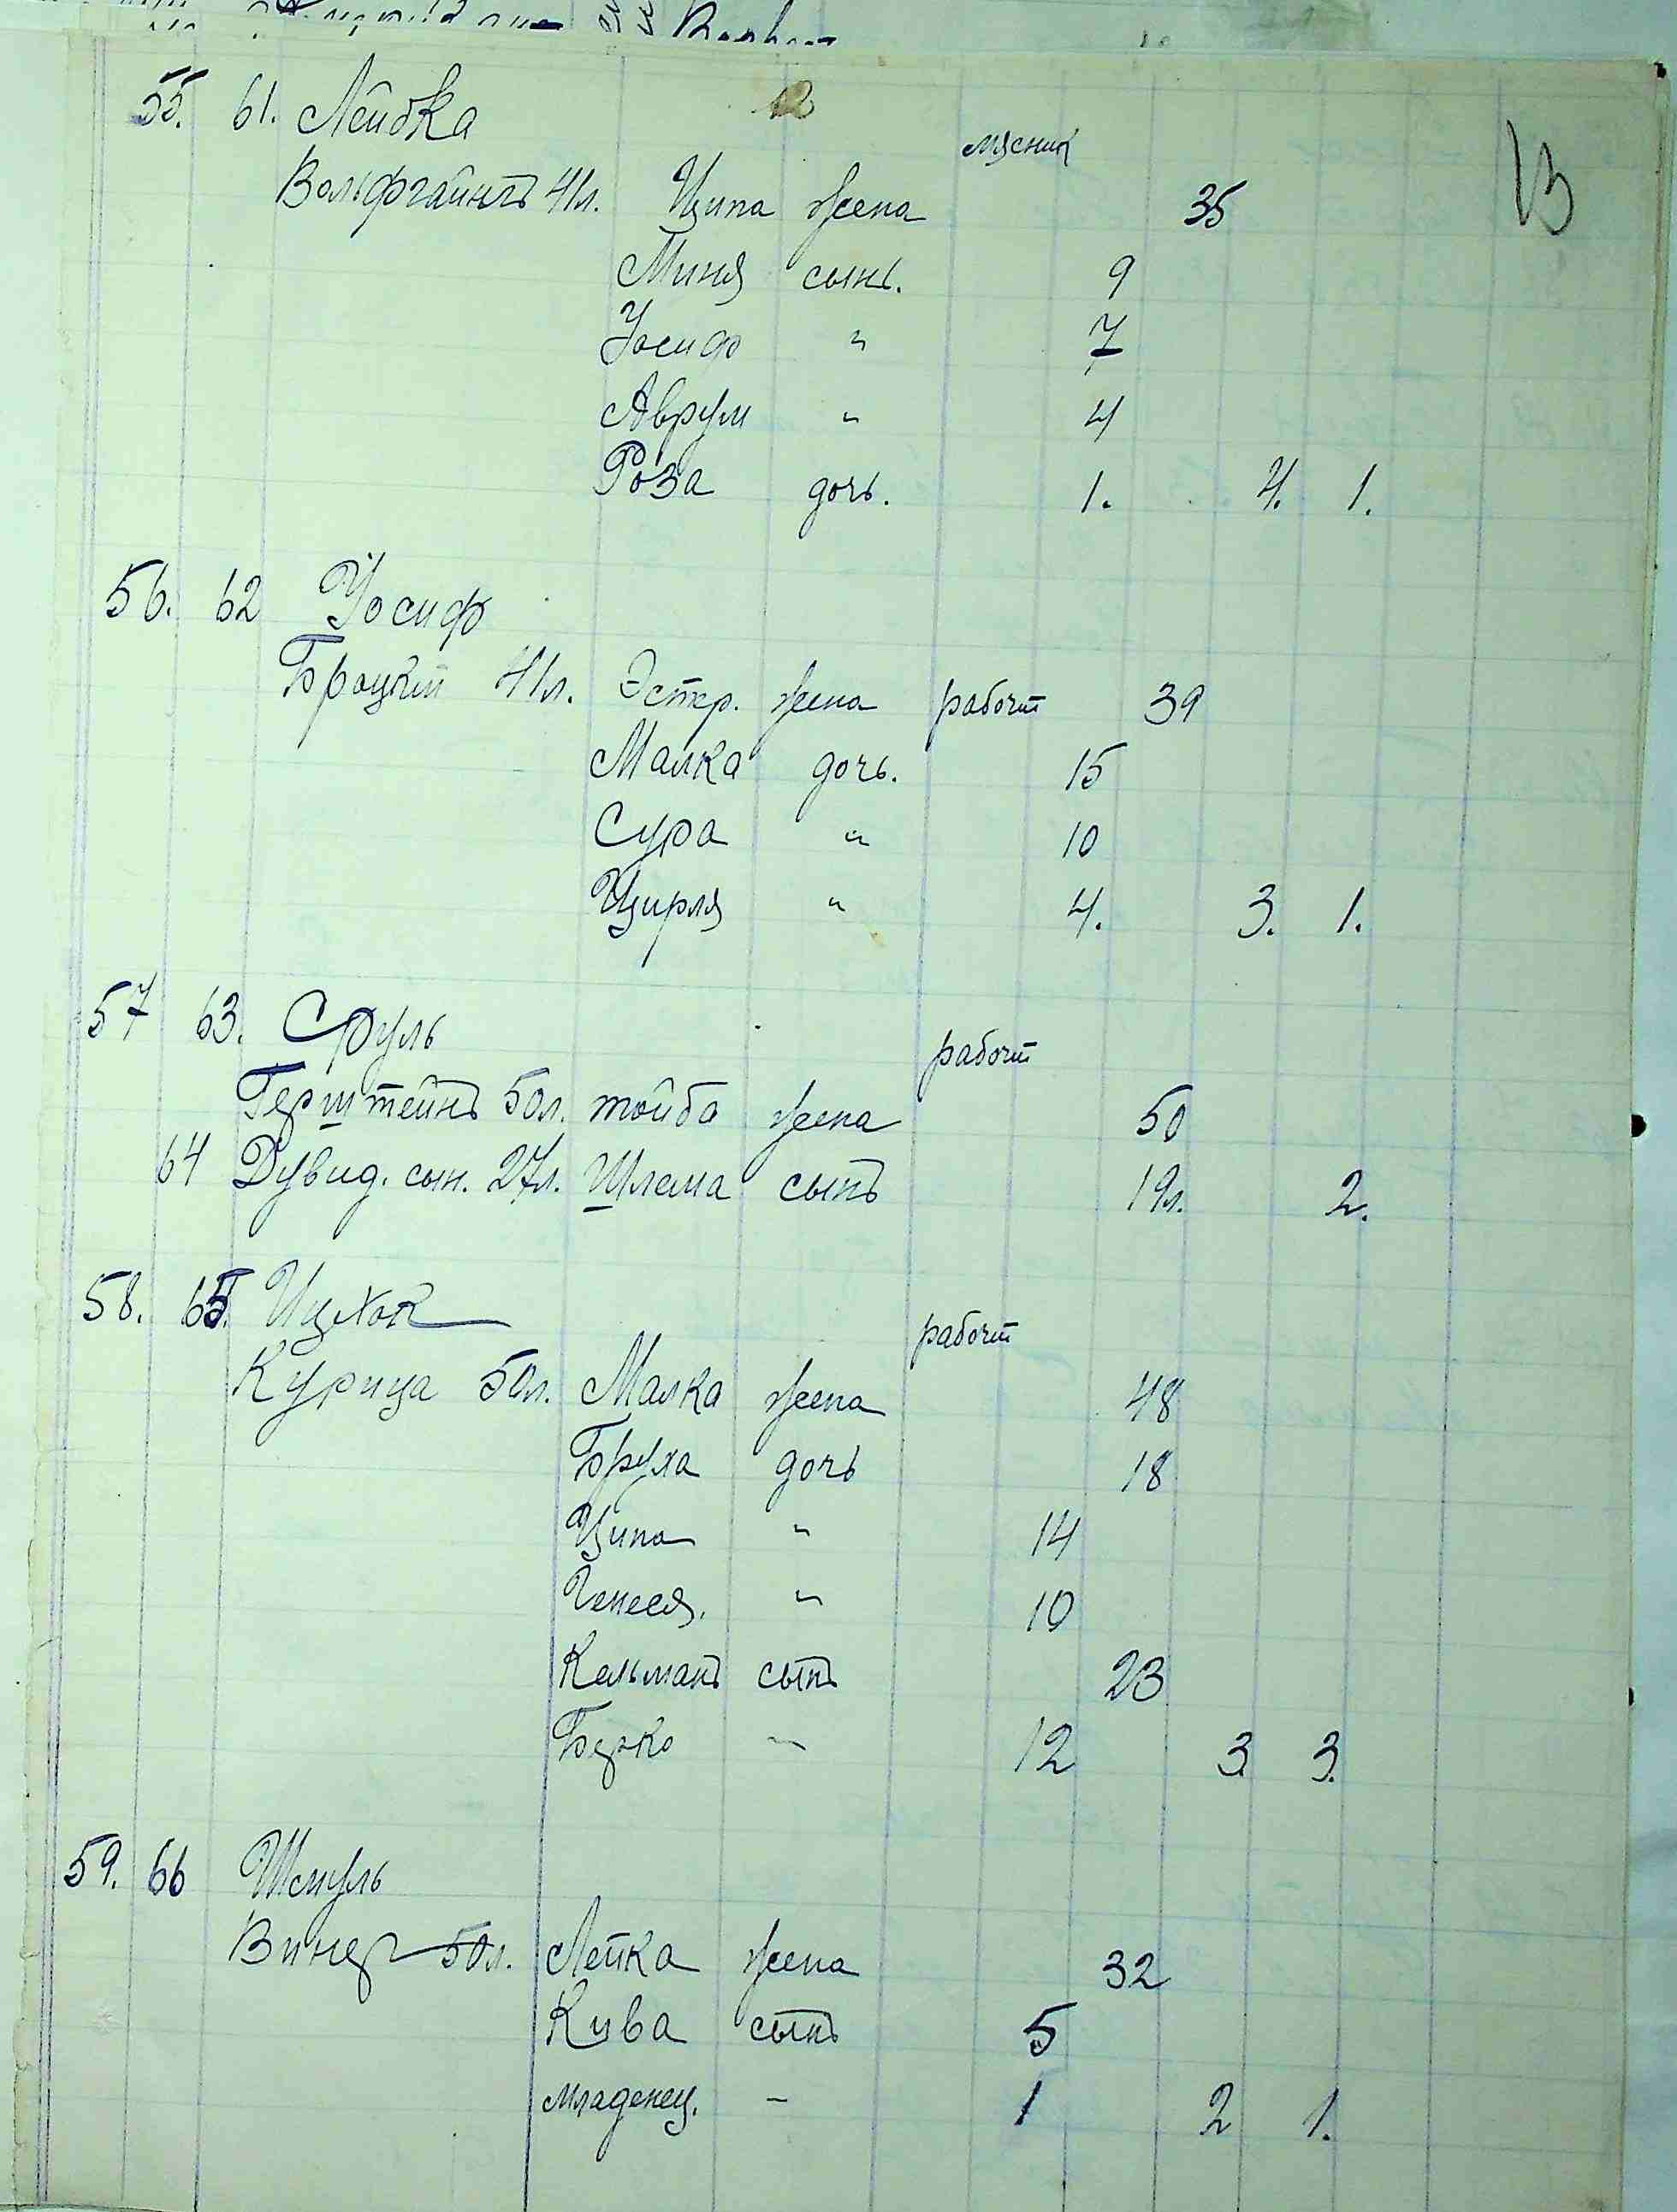 12
13
55. 61. Лейбка
мясник
Вольфгайнъ 41л. Ципа жена 35
Миня сынъ. 9
Иосиф " 7
Аврум " 4
Роза дочь. 1. 4. 1.
56. 62 Иосиф
Броцкий 41л. Эстер. жена рабочий 39
Малка дочь. 15
Сура " 10
Цирля " 4. 3. 1.
57 63. Сруль
рабочий
Герштейнъ 50л. тойба жена 50
64 Дувид. сын. 27л. Шлема сынъ 19л. 2.
58. 65. Ицхок
рабочий
Курица 50л. Малка жена 48
Бруха дочь 18
Ципа " 14
Генеся. " 10
Кельманъ сынъ 23
Берко " 12 3. 3.
59. 66 Шмуль
Винер 50л. Лейка жена 32
Кива сынъ 5
младенец. - 1 2 1.